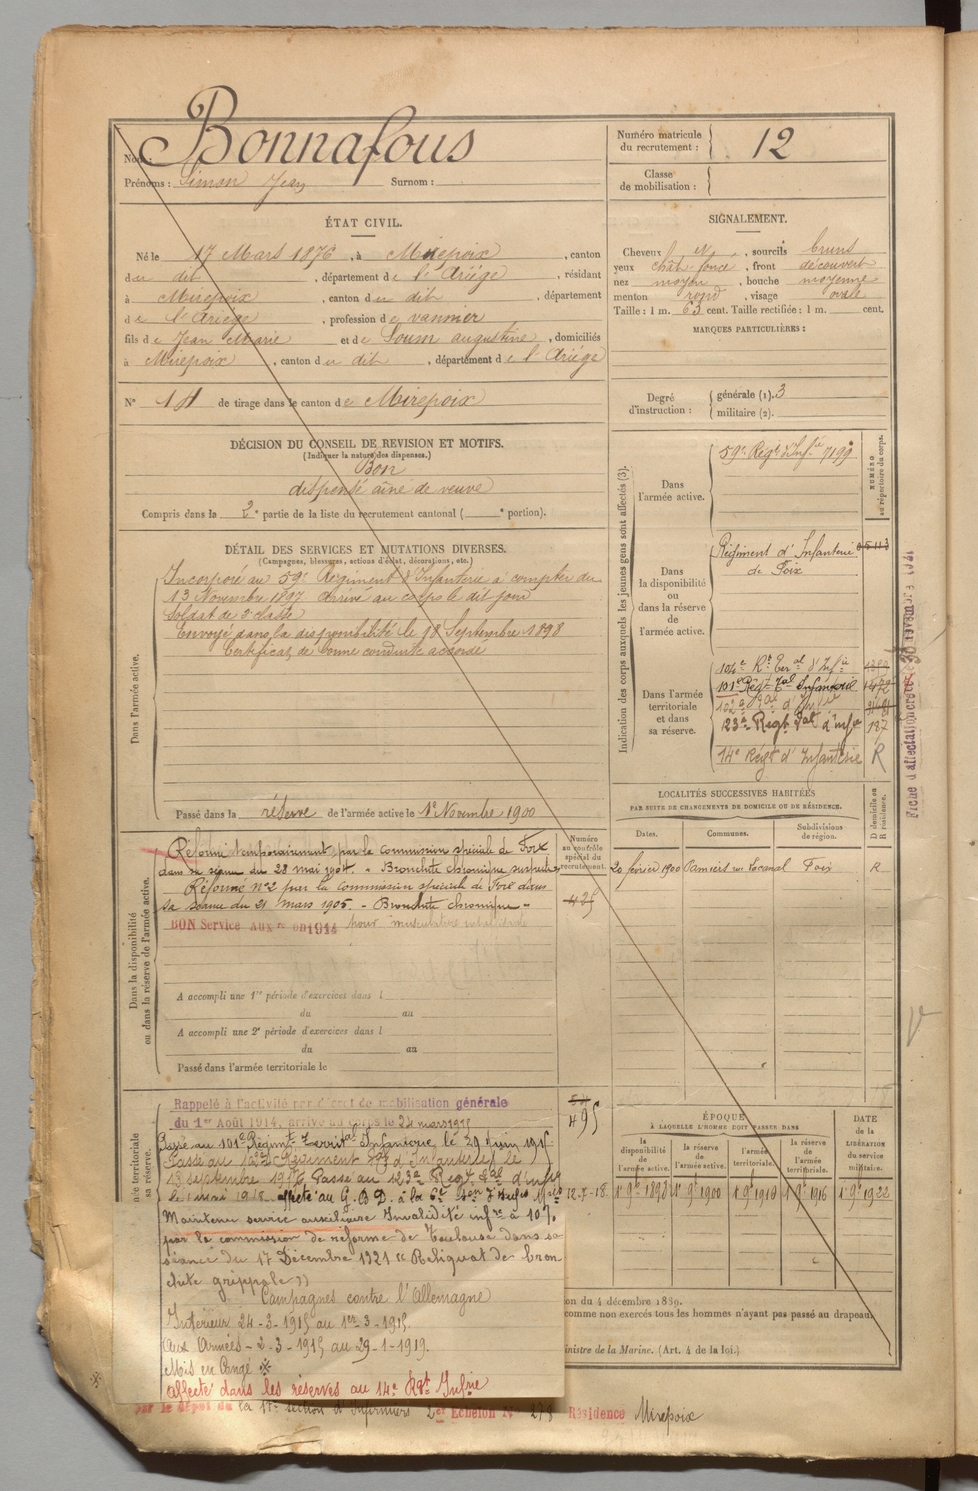 Nom : Bonnafous
Prénoms : Simon Jean Surnom :
Numéro matricule du recrutement : 12
Classe de mobilisation :
ÉTAT CIVIL.
Né le 17 Mars 1876, à Mirepoix, canton
du dit, département de l'Ariége, résidant
à Mirepoix, canton du dit, département
de l'Ariége, profession de vannier
fils de Jean Marie et de Soum augustine, domiciliés
à Mirepoix, canton du dit, département de l'Ariége
N° 14 de tirage dans le canton de Mirepoix
SIGNALEMENT.
Cheveux et, sourcils bruns
yeux chât. foncé, front découvert
nez moyen, bouche moyenne
menton rond, visage ovale
Taille : 1 m. 63 cent. Taille rectifiée : 1 m. cent.
MARQUES PARTICULIÈRES :
Degré d'instruction : générale (1). 3
militaire (2).
DÉCISION DU CONSEIL DE REVISION ET MOTIFS.
(Indiquer la nature des dispenses.)
Bon
dispensé aîné de veuve
Compris dans la 2e partie de la liste du recrutement cantonal ( e portion).
DÉTAIL DES SERVICES ET MUTATIONS DIVERSES.
(Campagnes, blessures, actions d'éclat, décorations, etc.)
Dans l'armée active.
Incorporé au 59e Régiment d'Infanterie à compter du
13 Novembre 1897 arrivé au corps le dit jour
Soldat de 2e classe
Envoyé dans la disponibilité le 18 Septembre 1898
Certificat de bonne conduite accordé
Passé dans la réserve de l'armée active le 1er Novembre 1900
Indication des corps auxquels les jeunes gens sont affectés (3).
NUMÉRO au répertoire du corps.
Dans l'armée active.
59e Régt d'Infie 7199
Dans la disponibilité ou dans la réserve de l'armée active.
Régiment d'Infanterie
de Foix
Dans l'armée territoriale et dans sa réserve.
104e Rt Teral d'Infie
101e Régt Tal Infanterie
102e d'Infie
123e Régt Tal d'infie 187
14e Régt d'Infanterie R
Fiche d'affectation
LOCALITÉS SUCCESSIVES HABITÉES
PAR SUITE DE CHANGEMENTS DE DOMICILE OU DE RÉSIDENCE.
D domicile ou R résidence.
Dates. Communes. Subdivisions de région.
20 février 1900 Pamiers rue Lacanal Foix R
Dans la disponibilité ou dans la réserve de l'armée active.
Numéro au contrôle spécial du recrutement.
Réformé temporairement par la commission spéciale de Foix
dans sa séance du 28 mai 1904. Bronchite chronique suspecte
Réformé n°2 par la commission spéciale de Foix dans
sa séance du 21 mars 1905. Bronchite chronique
425
BON Service Auxre en 1914 pour musculature
A accompli une 1re période d'exercices dans l
du au
A accompli une 2e période d'exercices dans l
du au
Passé dans l'armée territoriale le
Rappelé à l'activité par décret de mobilisation générale
du 1er Août 1914, arrivé au corps le 24 mars 1915
495
Passé au 101e Régiment Territal Infanterie le 29 Juin 1915
Passé au 102e Régiment Tal d'Infanterie le
13 septembre 1916 Passé au 123e Régt Tal d'infie
le 1 mai 1918. affecté au G.B.D. à la 12-7-18.
Maintenu service auxiliaire Invalidité infre à 10%
par la commission de réforme de Toulouse dans sa
séance du 17 Décembre 1921 « Reliquat de bron
chite grippale »
Campagnes contre l'Allemagne
Intérieur 24-3-1915 au 1er-3-1915.
Aux Armées - 2-3-1915 au 29-1-1919.
Mis en Congé
affecté dans les réserves au 14e Rgt Infrie
ÉPOQUE
À LAQUELLE L'HOMME DOIT PASSER DANS
la disponibilité de l'armée active. la réserve de l'armée active. l'armée territoriale. la réserve de l'armée territoriale.
DATE de la LIBÉRATION du service militaire.
1er 9bre 1898 1er 9bre 1900 1er 9bre 1910 1er 9bre 1916 1er 9bre 1922
on du 4 décembre 1889.
comme non exercés tous les hommes n'ayant pas passé au drapeau
inistre de la Marine. (Art. 4 de la loi.)
par le dépôt du la 17e section d'Infirmiers 2er Echelon N° 278 Résidence Mirepoix